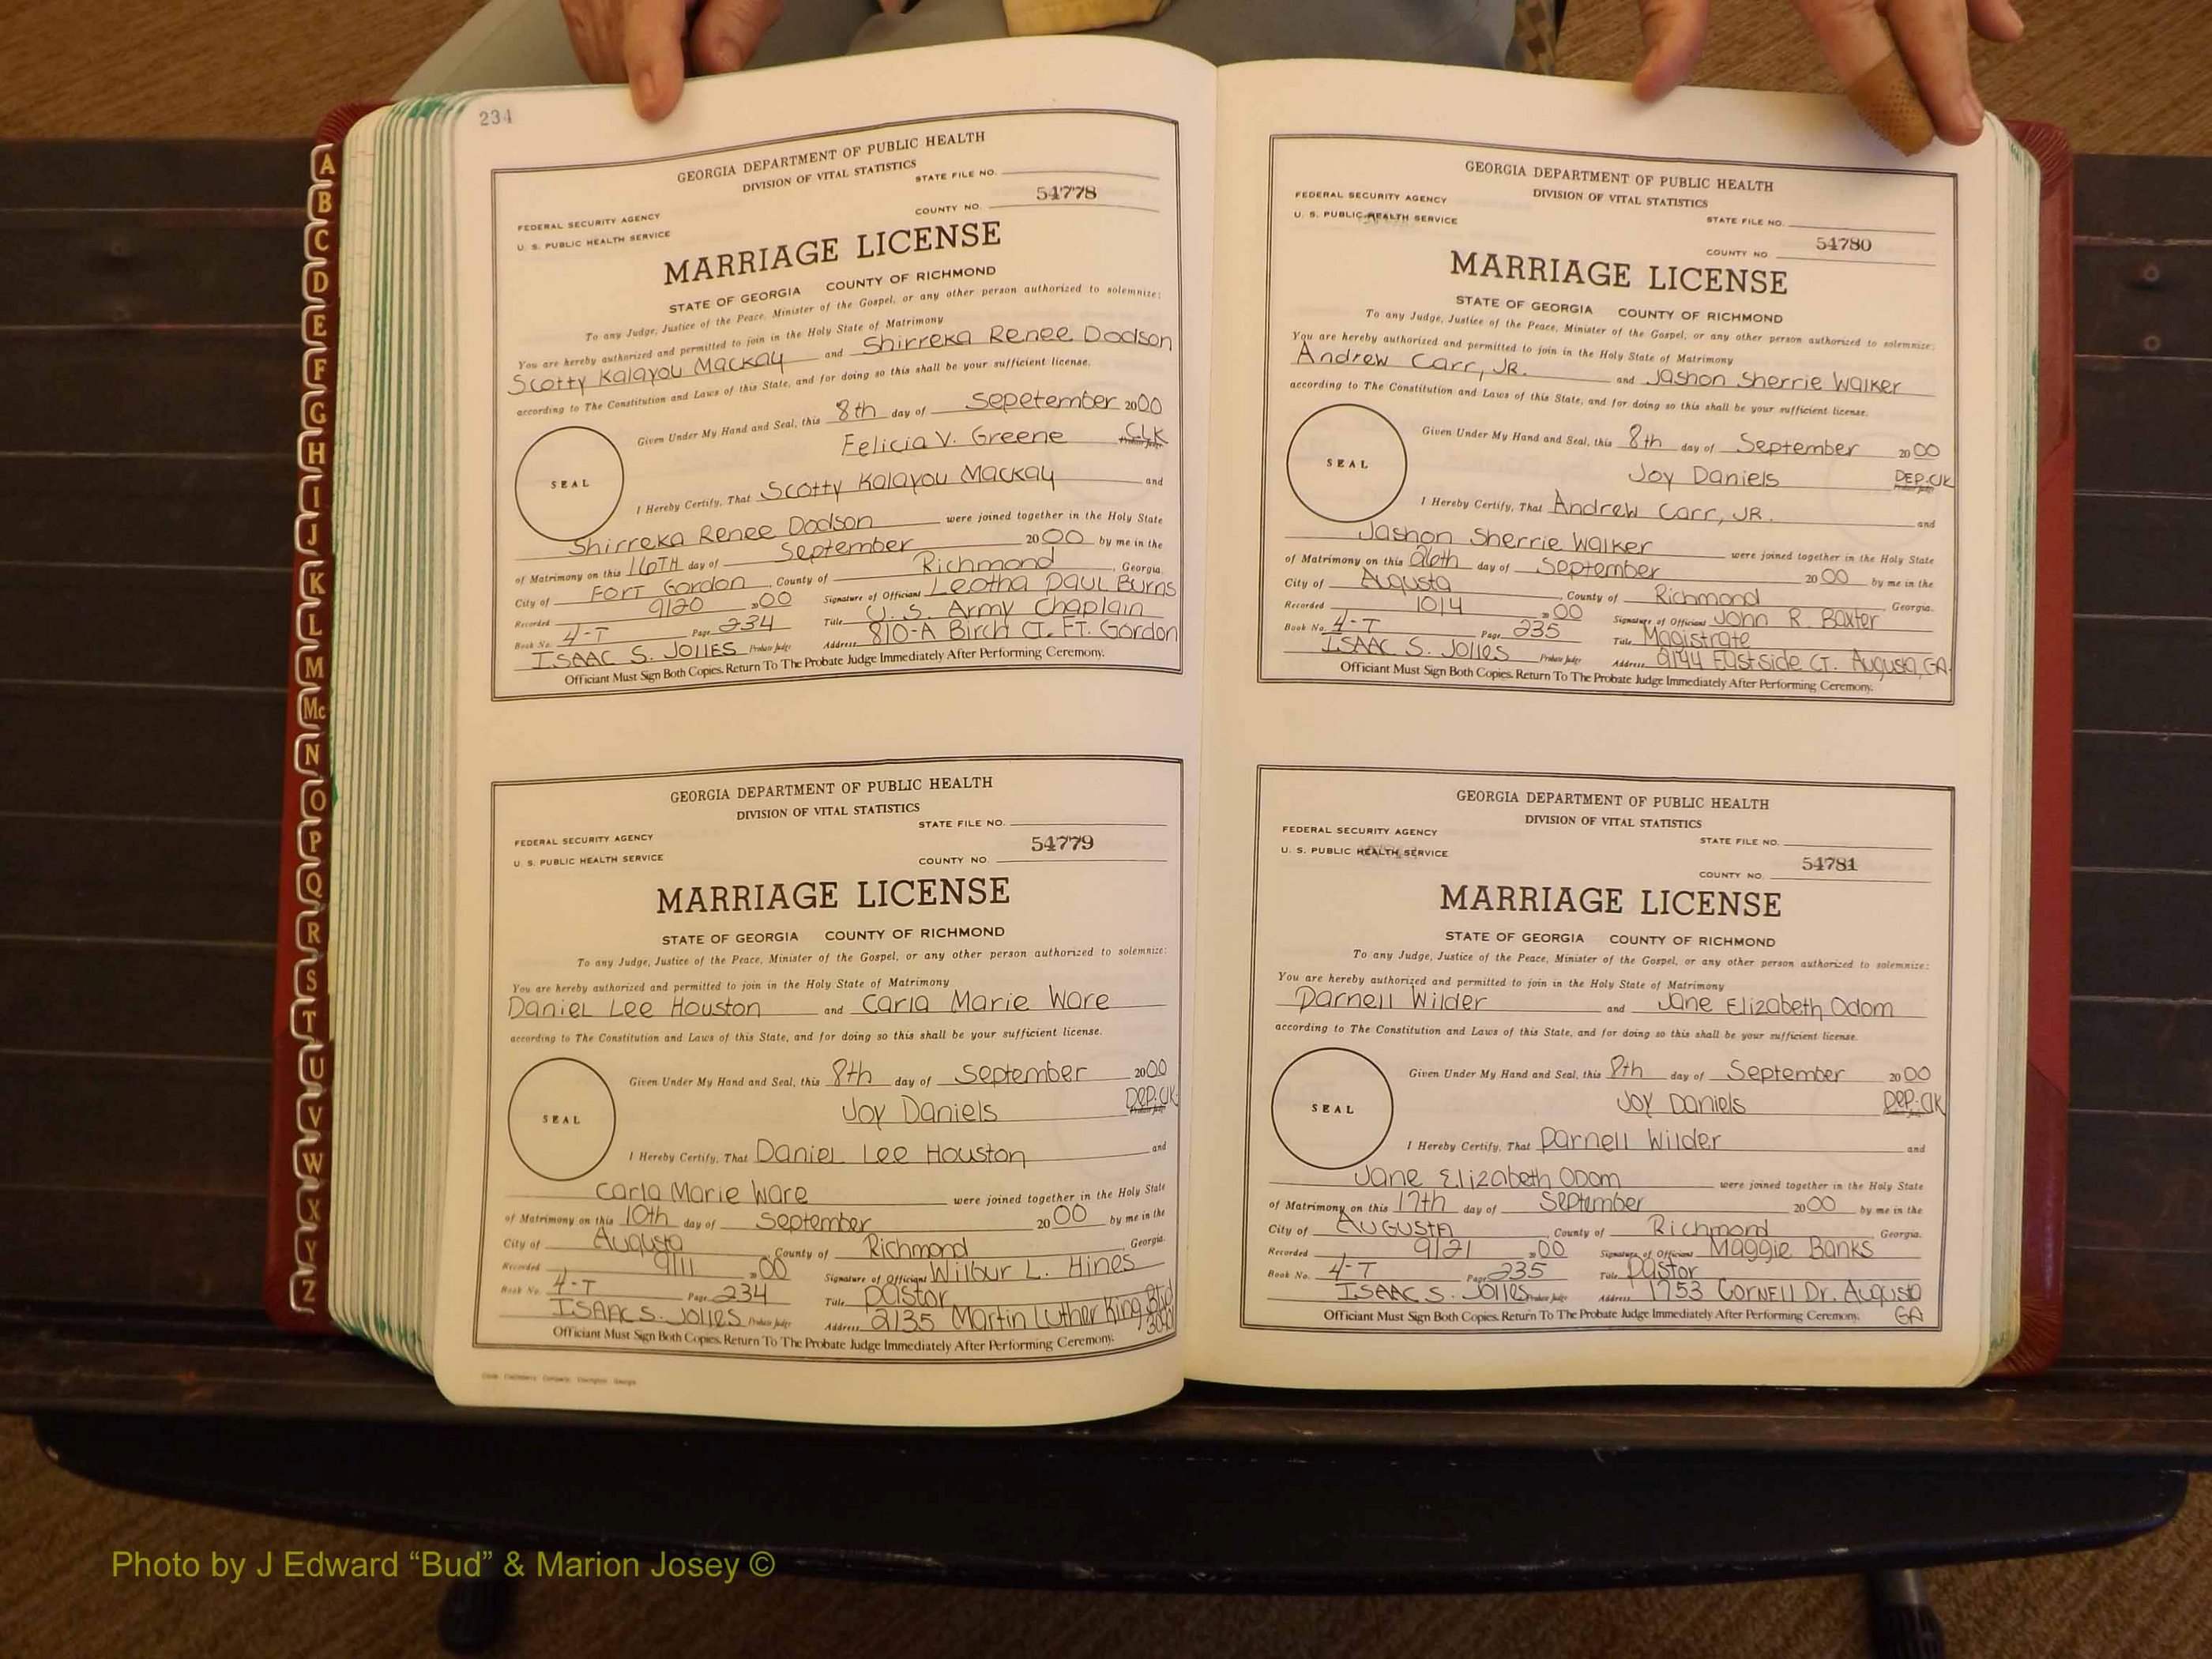 A
B
C
D
E
F
G
H
I
J
K
L
M
Mc
N
O
P
Q
R
S
T
U
V
W
X
Y
Z
234
GEORGIA DEPARTMENT OF PUBLIC HEALTH
DIVISION OF VITAL STATISTICS
STATE FILE NO.
FEDERAL SECURITY AGENCY
U. S. PUBLIC HEALTH SERVICE
COUNTY NO. 54778
MARRIAGE LICENSE
STATE OF GEORGIA COUNTY OF RICHMOND
To any Judge, Justice of the Peace, Minister of the Gospel, or any other person authorized to solemnize:
You are hereby authorized and permitted to join in the Holy State of Matrimony
Scotty Kalayou Mackay and Shirreka Renee Dodson
according to The Constitution and Laws of this State, and for doing so this shall be your sufficient license.
Given Under My Hand and Seal, this 8th day of Sepetember 2000
Felicia V. Greene CLK
SEAL
I Hereby Certify, That Scotty Kalayou Mackay and
Shirreka Renee Dodson were joined together in the Holy State
of Matrimony on this 16TH day of September 2000 by me in the
City of Fort Gordon, County of Richmond, Georgia.
Recorded 9/20 2000 Signature of Officiant Leotha Paul Burns
Book No. 4-T Page 234 Title U. S. Army Chaplain
ISAAC S. JOLLES Probate Judge Address 810-A Birch CT. FT. Gordon
Officiant Must Sign Both Copies. Return To The Probate Judge Immediately After Performing Ceremony.
GEORGIA DEPARTMENT OF PUBLIC HEALTH
DIVISION OF VITAL STATISTICS
STATE FILE NO.
FEDERAL SECURITY AGENCY
U. S. PUBLIC HEALTH SERVICE
COUNTY NO. 54779
MARRIAGE LICENSE
STATE OF GEORGIA COUNTY OF RICHMOND
To any Judge, Justice of the Peace, Minister of the Gospel, or any other person authorized to solemnize:
You are hereby authorized and permitted to join in the Holy State of Matrimony
Daniel Lee Houston and Carla Marie Ware
according to The Constitution and Laws of this State, and for doing so this shall be your sufficient license.
Given Under My Hand and Seal, this 8th day of September 2000
Joy Daniels DEP. CLK
SEAL
I Hereby Certify, That Daniel Lee Houston and
Carla Marie Ware were joined together in the Holy State
of Matrimony on this 10th day of September 2000 by me in the
City of Augusta, County of Richmond, Georgia.
Recorded 9/11 2000 Signature of Officiant Wilbur L. Hines
Book No. 4-T Page 234 Title Pastor
ISAAC S. JOLLES Probate Judge Address 2135 Martin Luther King Blvd
Officiant Must Sign Both Copies. Return To The Probate Judge Immediately After Performing Ceremony.
GEORGIA DEPARTMENT OF PUBLIC HEALTH
DIVISION OF VITAL STATISTICS
FEDERAL SECURITY AGENCY
U. S. PUBLIC HEALTH SERVICE
STATE FILE NO.
COUNTY NO 54780
MARRIAGE LICENSE
STATE OF GEORGIA COUNTY OF RICHMOND
To any Judge, Justice of the Peace, Minister of the Gospel, or any other person authorized to solemnize:
You are hereby authorized and permitted to join in the Holy State of Matrimony
Andrew Carr, JR. and Jashon Sherrie Walker
according to The Constitution and Laws of this State, and for doing so this shall be your sufficient license.
Given Under My Hand and Seal, this 8th day of September 2000
Joy Daniels DEP. CLK
SEAL
I Hereby Certify, That Andrew Carr, JR. and
Jashon Sherrie Walker were joined together in the Holy State
of Matrimony on this 26th day of September 2000 by me in the
City of Augusta, County of Richmond, Georgia.
Recorded 10/4 2000 Signature of Officiant John R. Baxter
Book No. 4-T Page 235 Title Magistrate
ISAAC S. JOLLES Probate Judge Address 2144 Eastside CT. Augusta, GA.
Officiant Must Sign Both Copies. Return To The Probate Judge Immediately After Performing Ceremony.
GEORGIA DEPARTMENT OF PUBLIC HEALTH
DIVISION OF VITAL STATISTICS
FEDERAL SECURITY AGENCY
U. S. PUBLIC HEALTH SERVICE
STATE FILE NO.
COUNTY NO. 54781
MARRIAGE LICENSE
STATE OF GEORGIA COUNTY OF RICHMOND
To any Judge, Justice of the Peace, Minister of the Gospel, or any other person authorized to solemnize:
You are hereby authorized and permitted to join in the Holy State of Matrimony
Parnell Wilder and Jane Elizabeth Odom
according to The Constitution and Laws of this State, and for doing so this shall be your sufficient license.
Given Under My Hand and Seal, this 8th day of September 2000
Joy Daniels DEP. CLK
SEAL
I Hereby Certify, That Parnell Wilder and
Jane Elizabeth Odom were joined together in the Holy State
of Matrimony on this 17th day of September 2000 by me in the
City of AUGUSTA, County of Richmond, Georgia.
Recorded 9/21 2000 Signature of Officiant Maggie Banks
Book No. 4-T Page 235 Title Pastor
ISAAC S. JOLLES Probate Judge Address 1753 Cornell Dr. Augusta
GA
Officiant Must Sign Both Copies. Return To The Probate Judge Immediately After Performing Ceremony.
Photo by J Edward “Bud” & Marion Josey ©